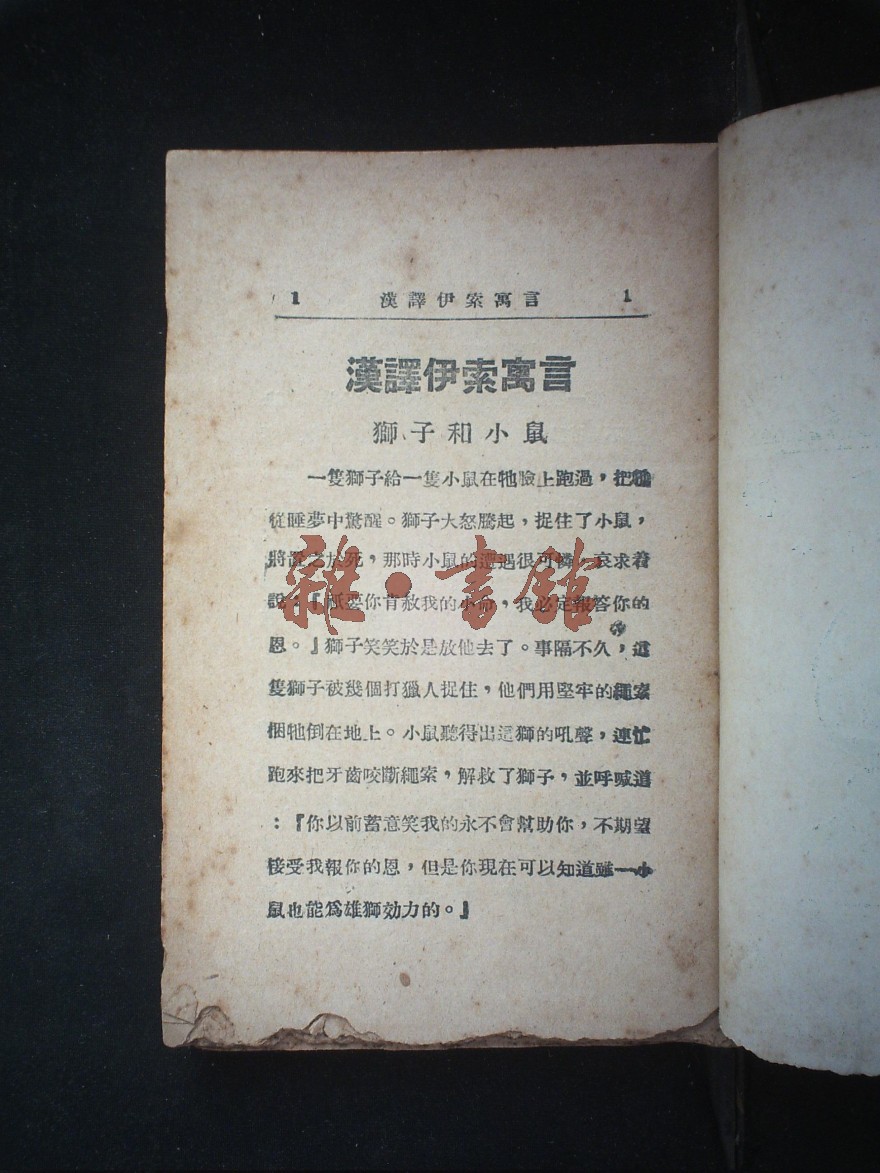 1 漢譯伊索寓言 1
漢譯伊索寓言
獅子和小鼠
一隻獅子給一隻小鼠在牠臉上跑過，把牠
從睡夢中驚醒。獅子大怒騰起，捉住了小鼠，
將置之於死，那時小鼠的遭遇很可憐，哀求着
說：『祇要你肯赦我的小命，我必定報答你的
恩。』獅子笑笑於是放他去了。事隔不久，這
隻獅子被幾個打獵人捉住，他們用堅牢的繩索
捆牠倒在地上。小鼠聽得出這獅的吼聲，連忙
跑來把牙齒咬斷繩索，解救了獅子，並呼喊道
：『你以前蓄意笑我的永不會幫助你，不期望
接受我報你的恩，但是你現在可以知道雖一小
鼠也能爲雄獅効力的。』
雜·書館